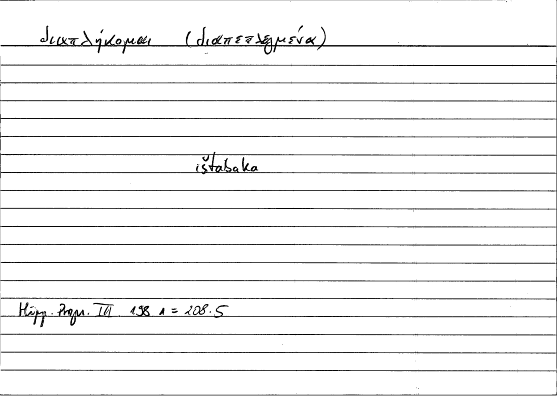 διαπλήκομαι (διαπεπλεγμένα)
ištabaka
Hipp. Progn. III. 198 1 = 208.5